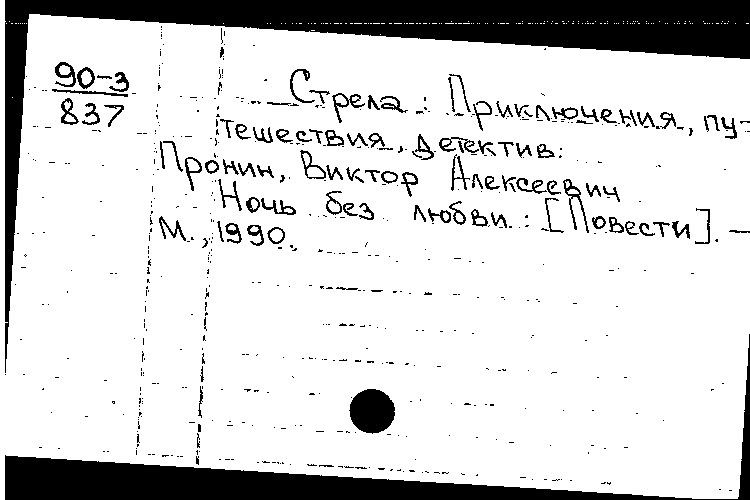 90-3
837
Стрела : Приключения, пу-
тешествия, детектив:
Пронин, Виктор Алексеевич
Ночь без любви : [Повести]. —
М., 1990.